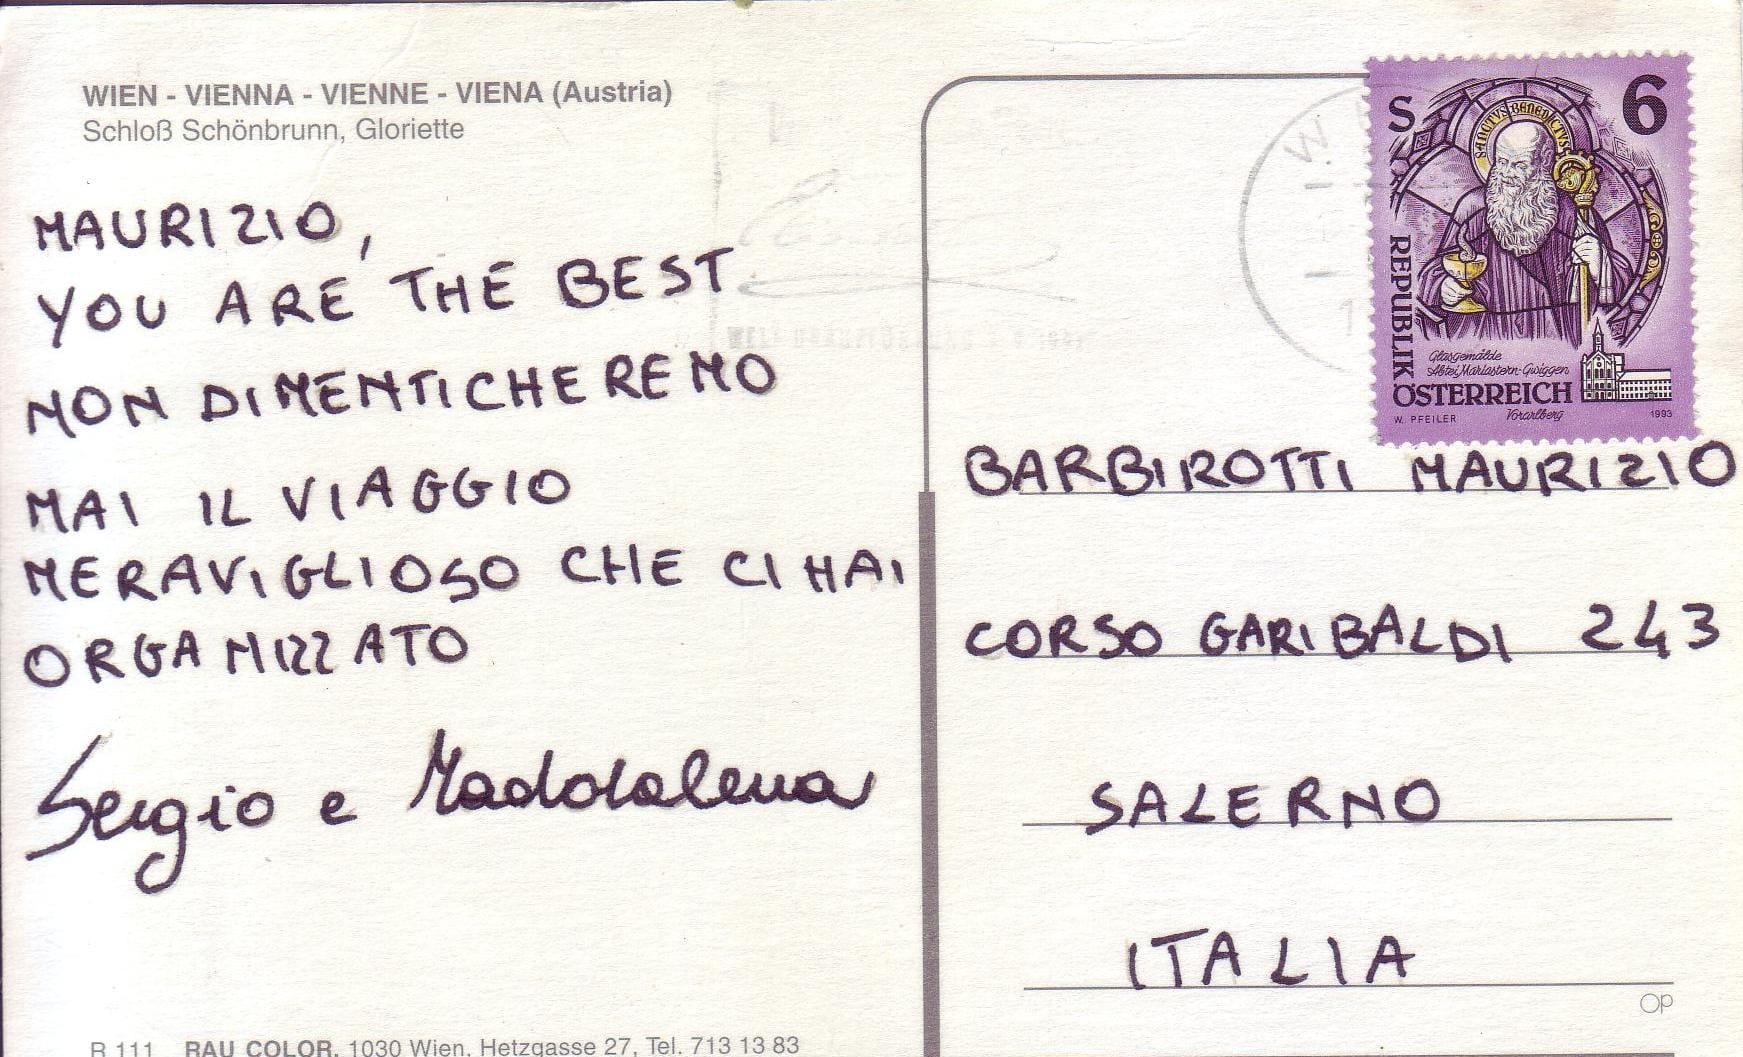 WIEN - VIENNA - VIENNE - VIENA (Austria)
Schloß Schönbrunn, Gloriette
MAURIZIO,
YOU ARE THE BEST
NON DIMENTICHEREMO
MAI IL VIAGGIO
MERAVIGLIOSO CHE CI HAI
ORGANIZZATO
Sergio e Maddalena
R 111 RAU COLOR, 1030 Wien, Hetzgasse 27, Tel. 713 13 83
S 6
SANCTVS BENEDICTVS
REPUBLIK
Glasgemälde
Abtei Mariastern-Gwiggen
ÖSTERREICH
Vorarlberg
W. PFEILER
1993
BARBIROTTI MAURIZIO
CORSO GARIBALDI 243
SALERNO
ITALIA
OP